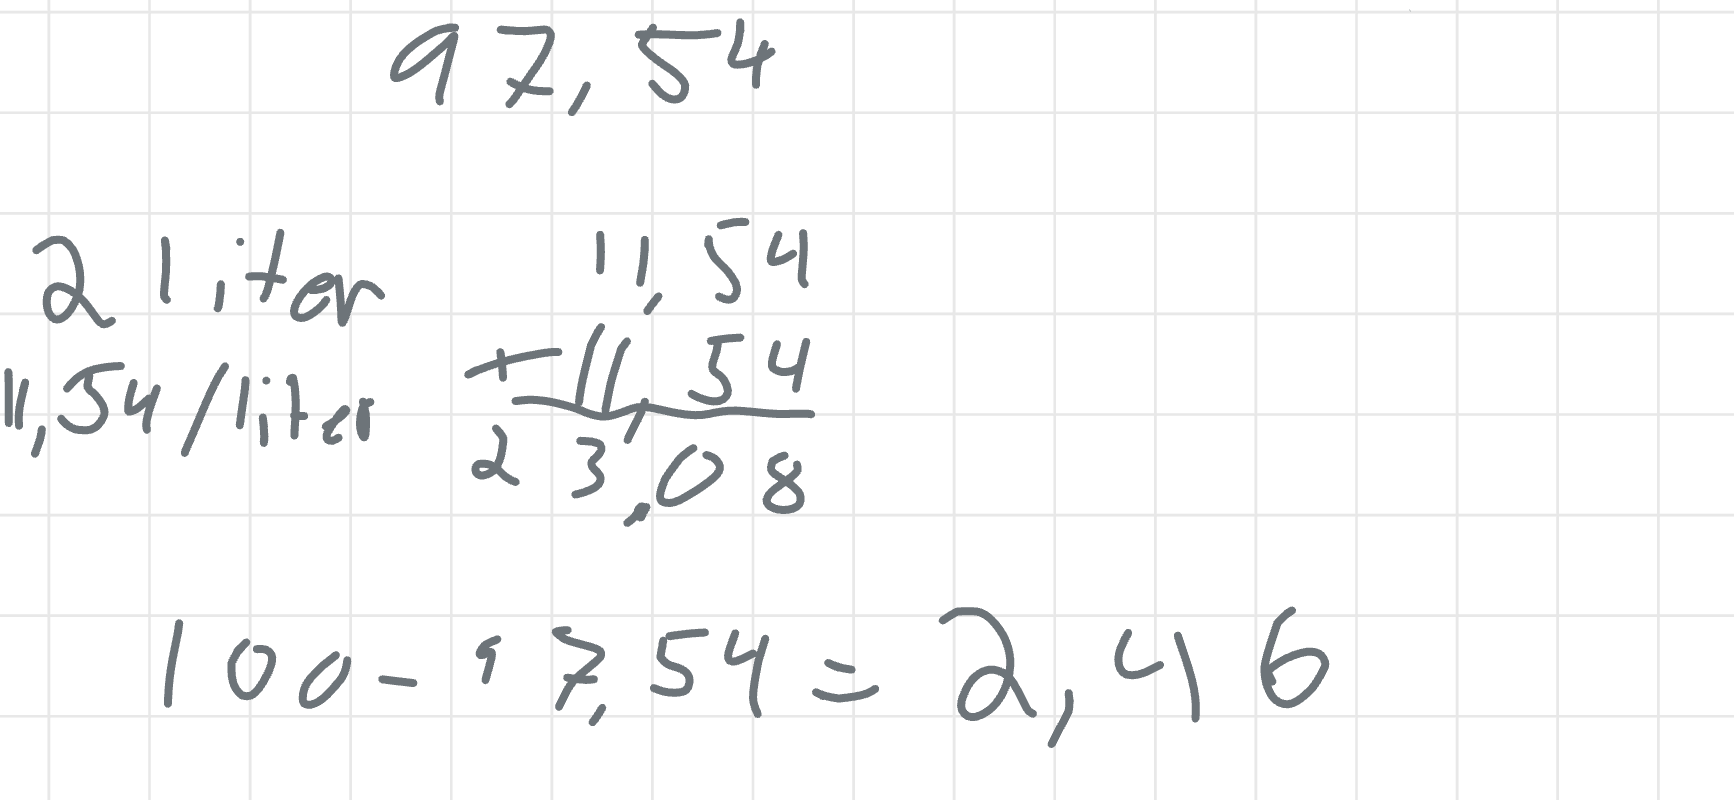 97,54
2 liter
11,54/liter
11,54
+11,54
23,08
100-97,54=2,46